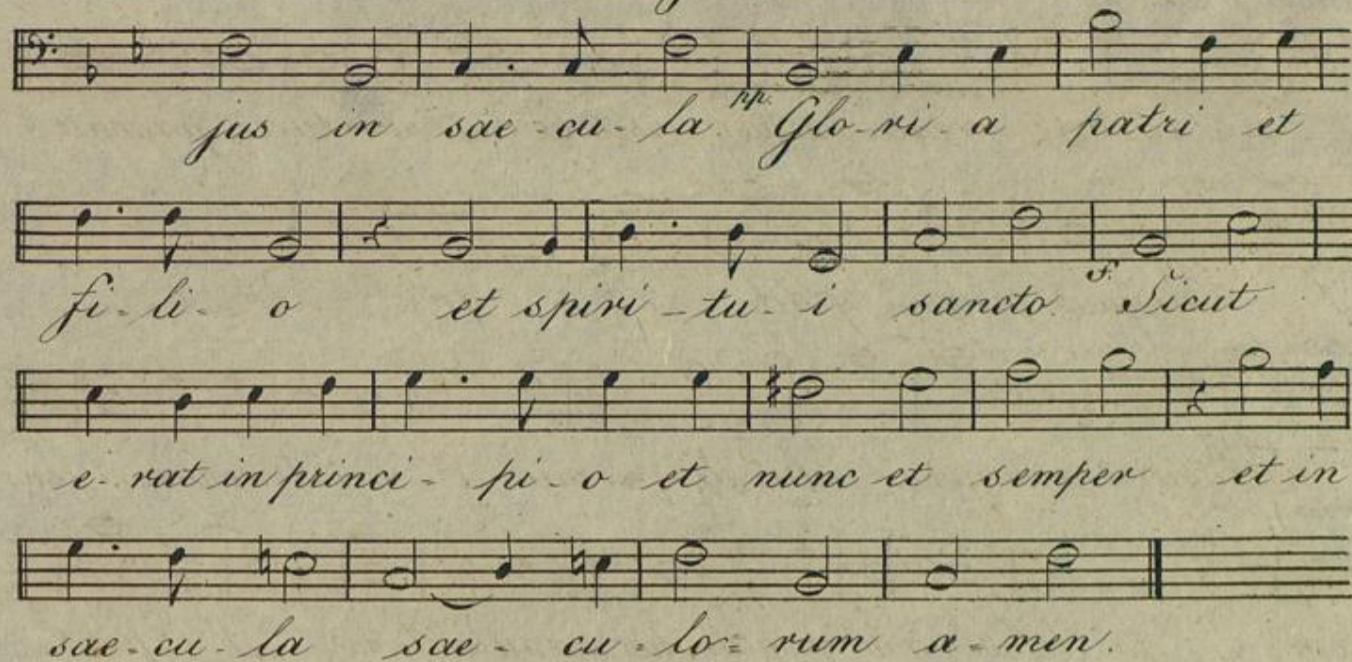 jus in sae-cu-la pp. Glo-ri-a patri et
fi-li-o et spiri-tu-i sancto. f. Sicut
e-rat in princi-pi-o et nunc et semper et in
sae-cu-la sae-cu-lo=rum a-men.